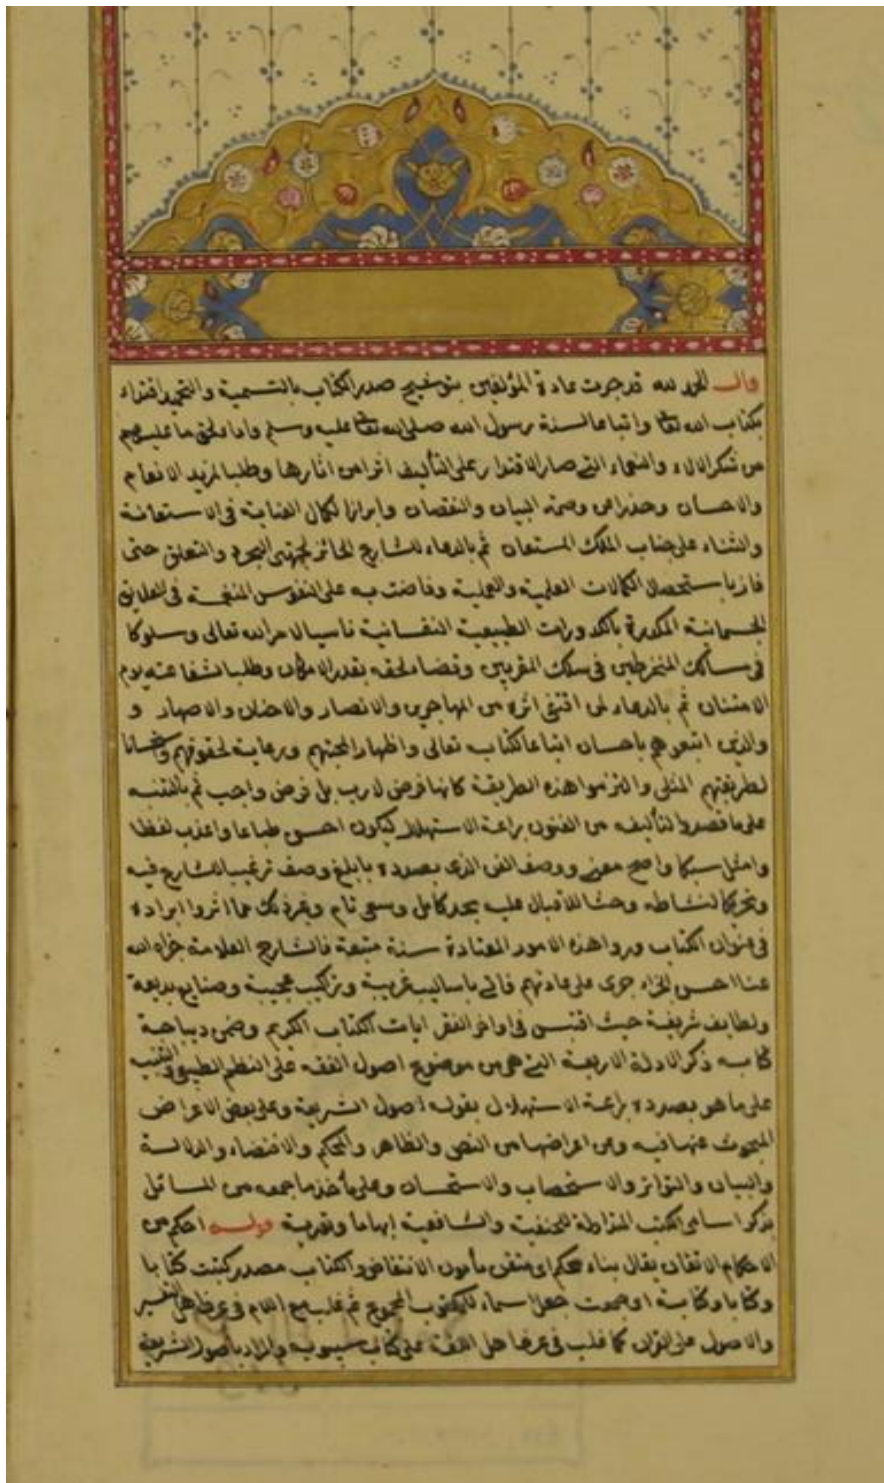 قال الحمد لله قد جرت عادة المؤلفين بتوشيح صدر الكتاب بالتسمية والتحميد اقتداء
بكتاب الله تعالى واتباعا لسنة رسول الله صلى الله تعالى عليه وسلم واداء لحق ما عليهم
من شكر الالاء والنعماء التي صار الاقتدار على التأليف اثرا من اثارها وطلبا لمزيد الانعام
والاحسان وحذرا عن وصمة والنقصان وابرازا لكمال العناية في الاستعانة
والثناء على جناب الملك المستعان ثم بالدعاء للشارع الحائز لجهتي التجرد والتعلق حتى
فاز باستحصال الكمالات العلمية والعملية وفاضت به على النفوس المنغمسة في العلايق
الجسمانية المكدرة بالكدورات الطبيعية النفسانية تأسيا لامر الله تعالى وسلوكا
في مسالك المنخرطين في سلك المقربين وقضاء لحقه بقدر الامكان وطلبا لشفاعته يوم
الامتنان ثم بالدعاء لمن اقتفى اثره من المهاجرين والانصار والاختان والاصهار و
والذين اتبعوهم باحسان اتباعا لكتاب تعالى واظهارا لمحبتهم ورعاية لحقوقهم
لطريقتهم المثلى والتزموا هذه الطريقة كانها فرض لازب بل فرض واجب ثم بالتنبيه
على ما قصدوا لتأليفه من الفنون براعة الاستهلال ليكون احسن طباعا واعذب لفظا
وامثل سبكا واصح معنى ووصف الفن الذي بصدده بابلغ وصف ترغيبا للشارع فيه
وتحريكا لنشاطه وحثا للاقبال عليه بجد كامل وسعي تام وغير ذلك مما اثروا ايراده
في عنوان الكتاب ورواهذه الامور المعتادة سنة متبعة فالشارح العلامة جزاه الله
عنا احسن الجزاء جرى على عادتهم فاتى باساليب غريبة وتراكيب عجيبة وصنايع بديعة
ولطايف شريفة حيث اقتبس في اواخر الفقر ايات الكتاب الكريم وضمن ديباجة
كتابه ذكر الادلة الاربعة التي هي من موضوع اصول الفقه على النظم الطبيعي والتنبيه
على ما هو بصدده براعة الاستهلال بقوله اصول الشريعة وعلى بعض الاعراض
المبحوث عنها فيه وعن اعراضها من النص والظاهر والمحكم والاقتضاء والدلالة
والبيان والتواتر والاستصحاب والاستحسان وعلى مأخذ ما جمعه من المسائل
بذكر اسامي الكتب المتداولة للحنفية والشافعية ايهاما وتورية قوله احكم من
الاحكام الاتقان يقال بناء محكم اي متقن مأمون الانتقاض والكتاب مصدر كتبت كتابا
وكتابا وكتابة اي جمعت جعل اسماء للمكتوب المجموع ثم غلب مع اللام في عرف اهل التفسير
والاصول على القران كما غلب في عرف اهل اللغة على كتاب سيبويه والمراد باصول الشريعة